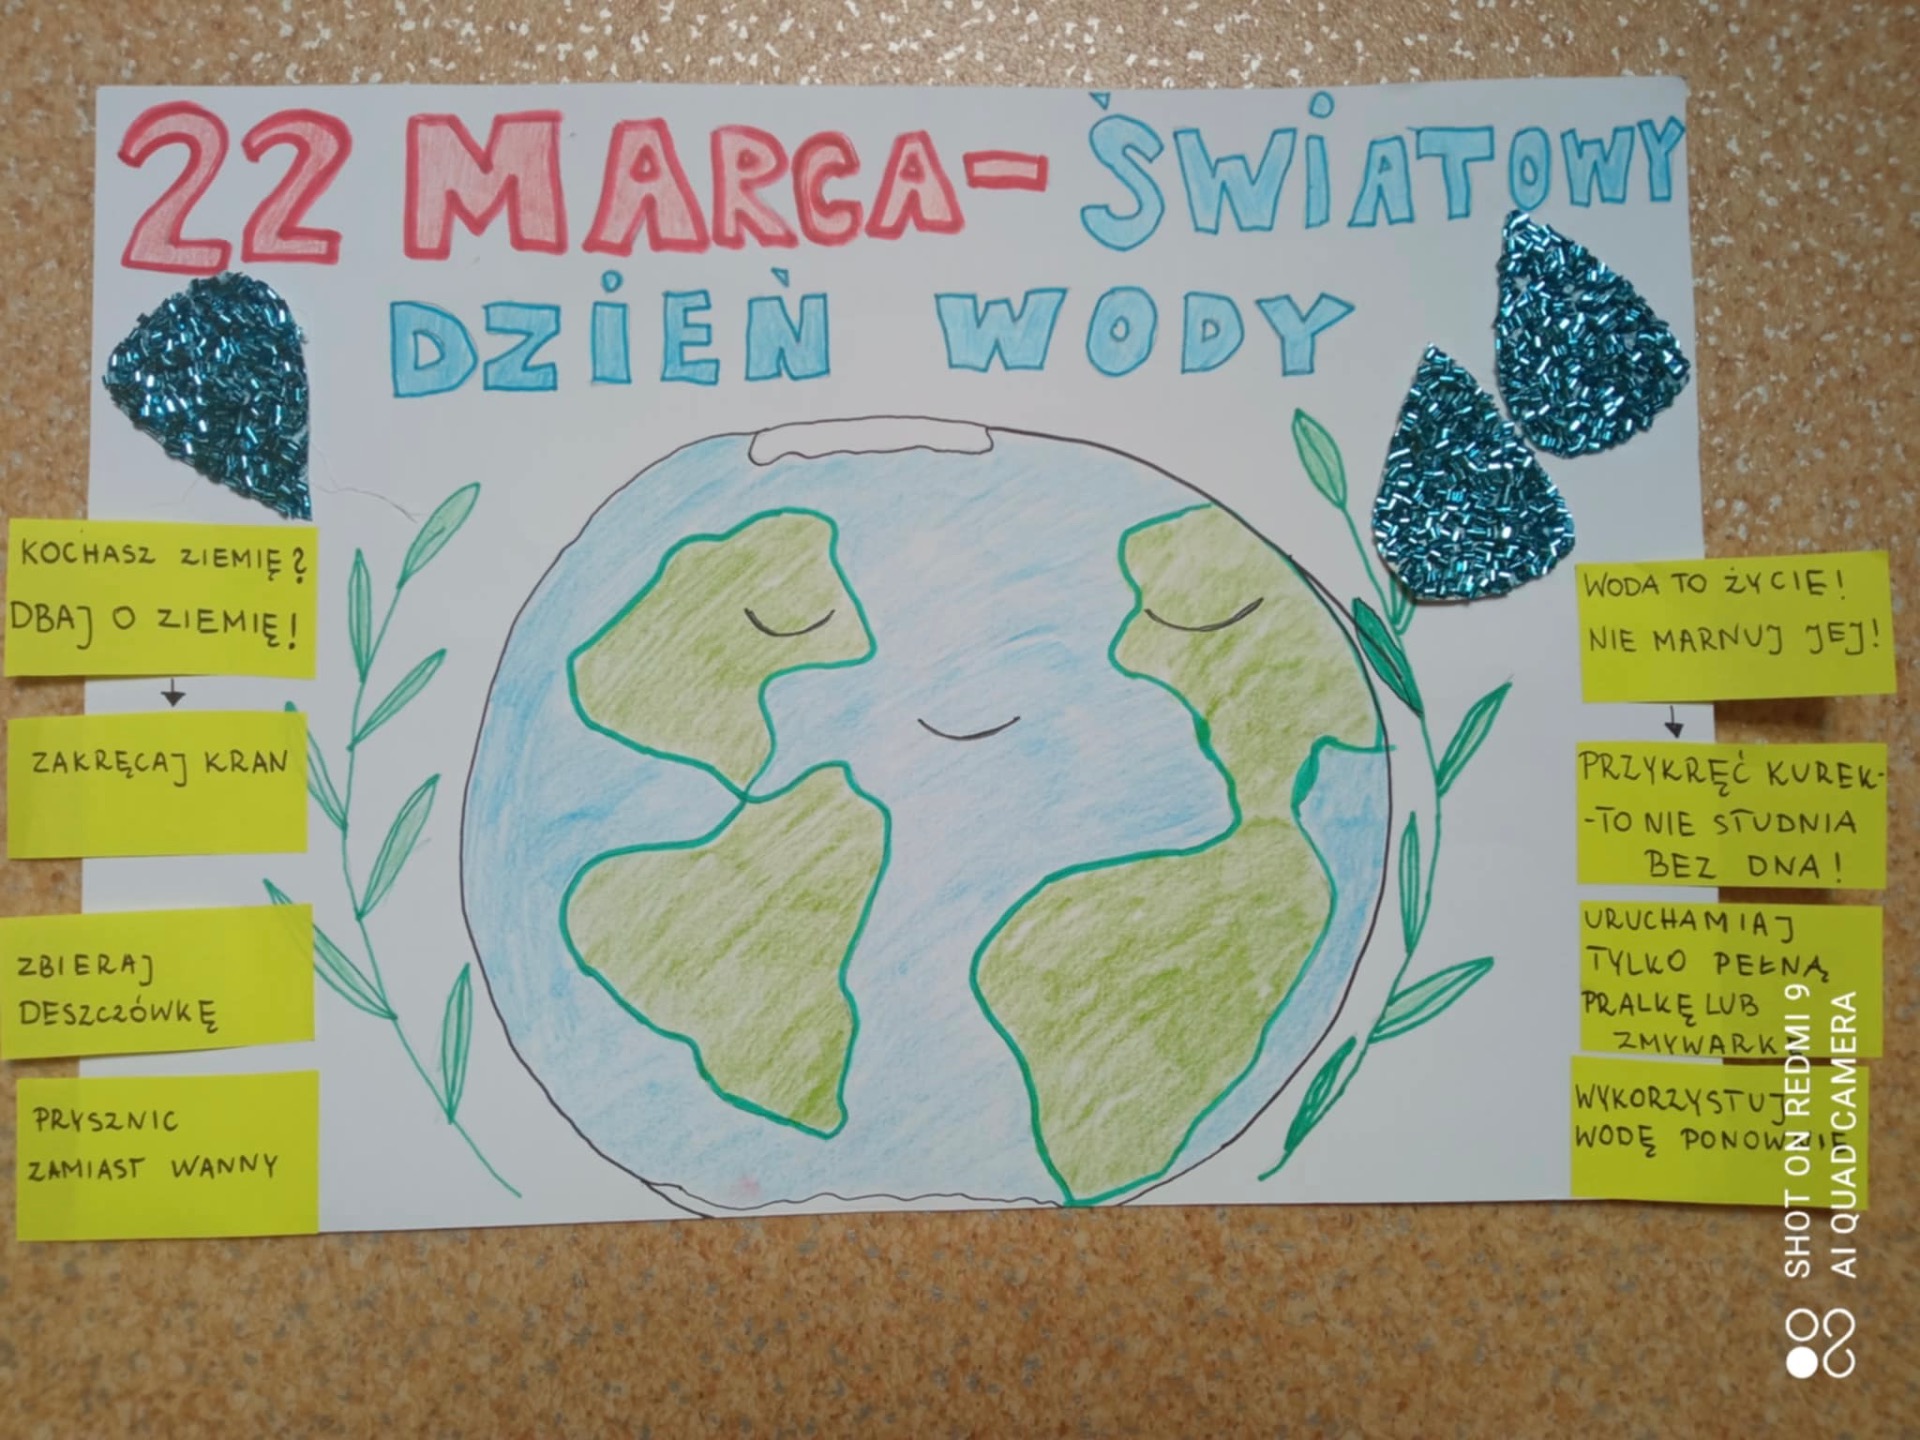 22 MARCA- ŚWIATOWY
DZIEŃ WODY
KOCHASZ ZIEMIĘ?
DBAJ O ZIEMIĘ!
ZAKRĘCAJ KRAN
ZBIERAJ
DESZCZÓWKĘ
PRYSZNIC
ZAMIAST WANNY
WODA TO ŻYCIE!
NIE MARNUJ JEJ!
PRZYKRĘĆ KUREK-
-TO NIE STUDNIA
BEZ DNA!
URUCHAMIAJ
TYLKO PEŁNĄ
PRALKĘ LUB
ZMYWARKĘ
WYKORZYSTUJ
WODĘ PONOWNIE
SHOT ON REDMI 9
AI QUAD CAMERA